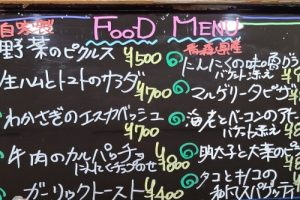 FOOD MENU
自家製
野菜のピクルス ¥500
生ハムとトマトのサラダ ¥700
わかさぎのエスカベッシュ ¥700
牛肉のカルパッチョ
にんにくチップのせ ¥800
ガーリックトースト ¥400
青森県産
にんにくの
バケット添え
マルゲリータピザ
海老とベーコンの
バケット添え
明太子と大葉の
タコとキノコの
和風スパゲッティ